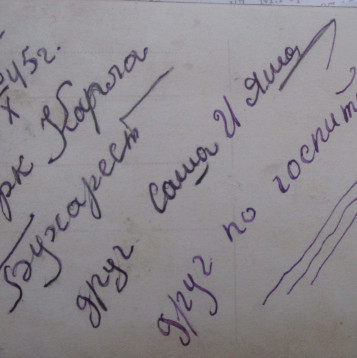 X 45г.
рк Карла
Бухарест
друг Саша и Яша
друг по госпит